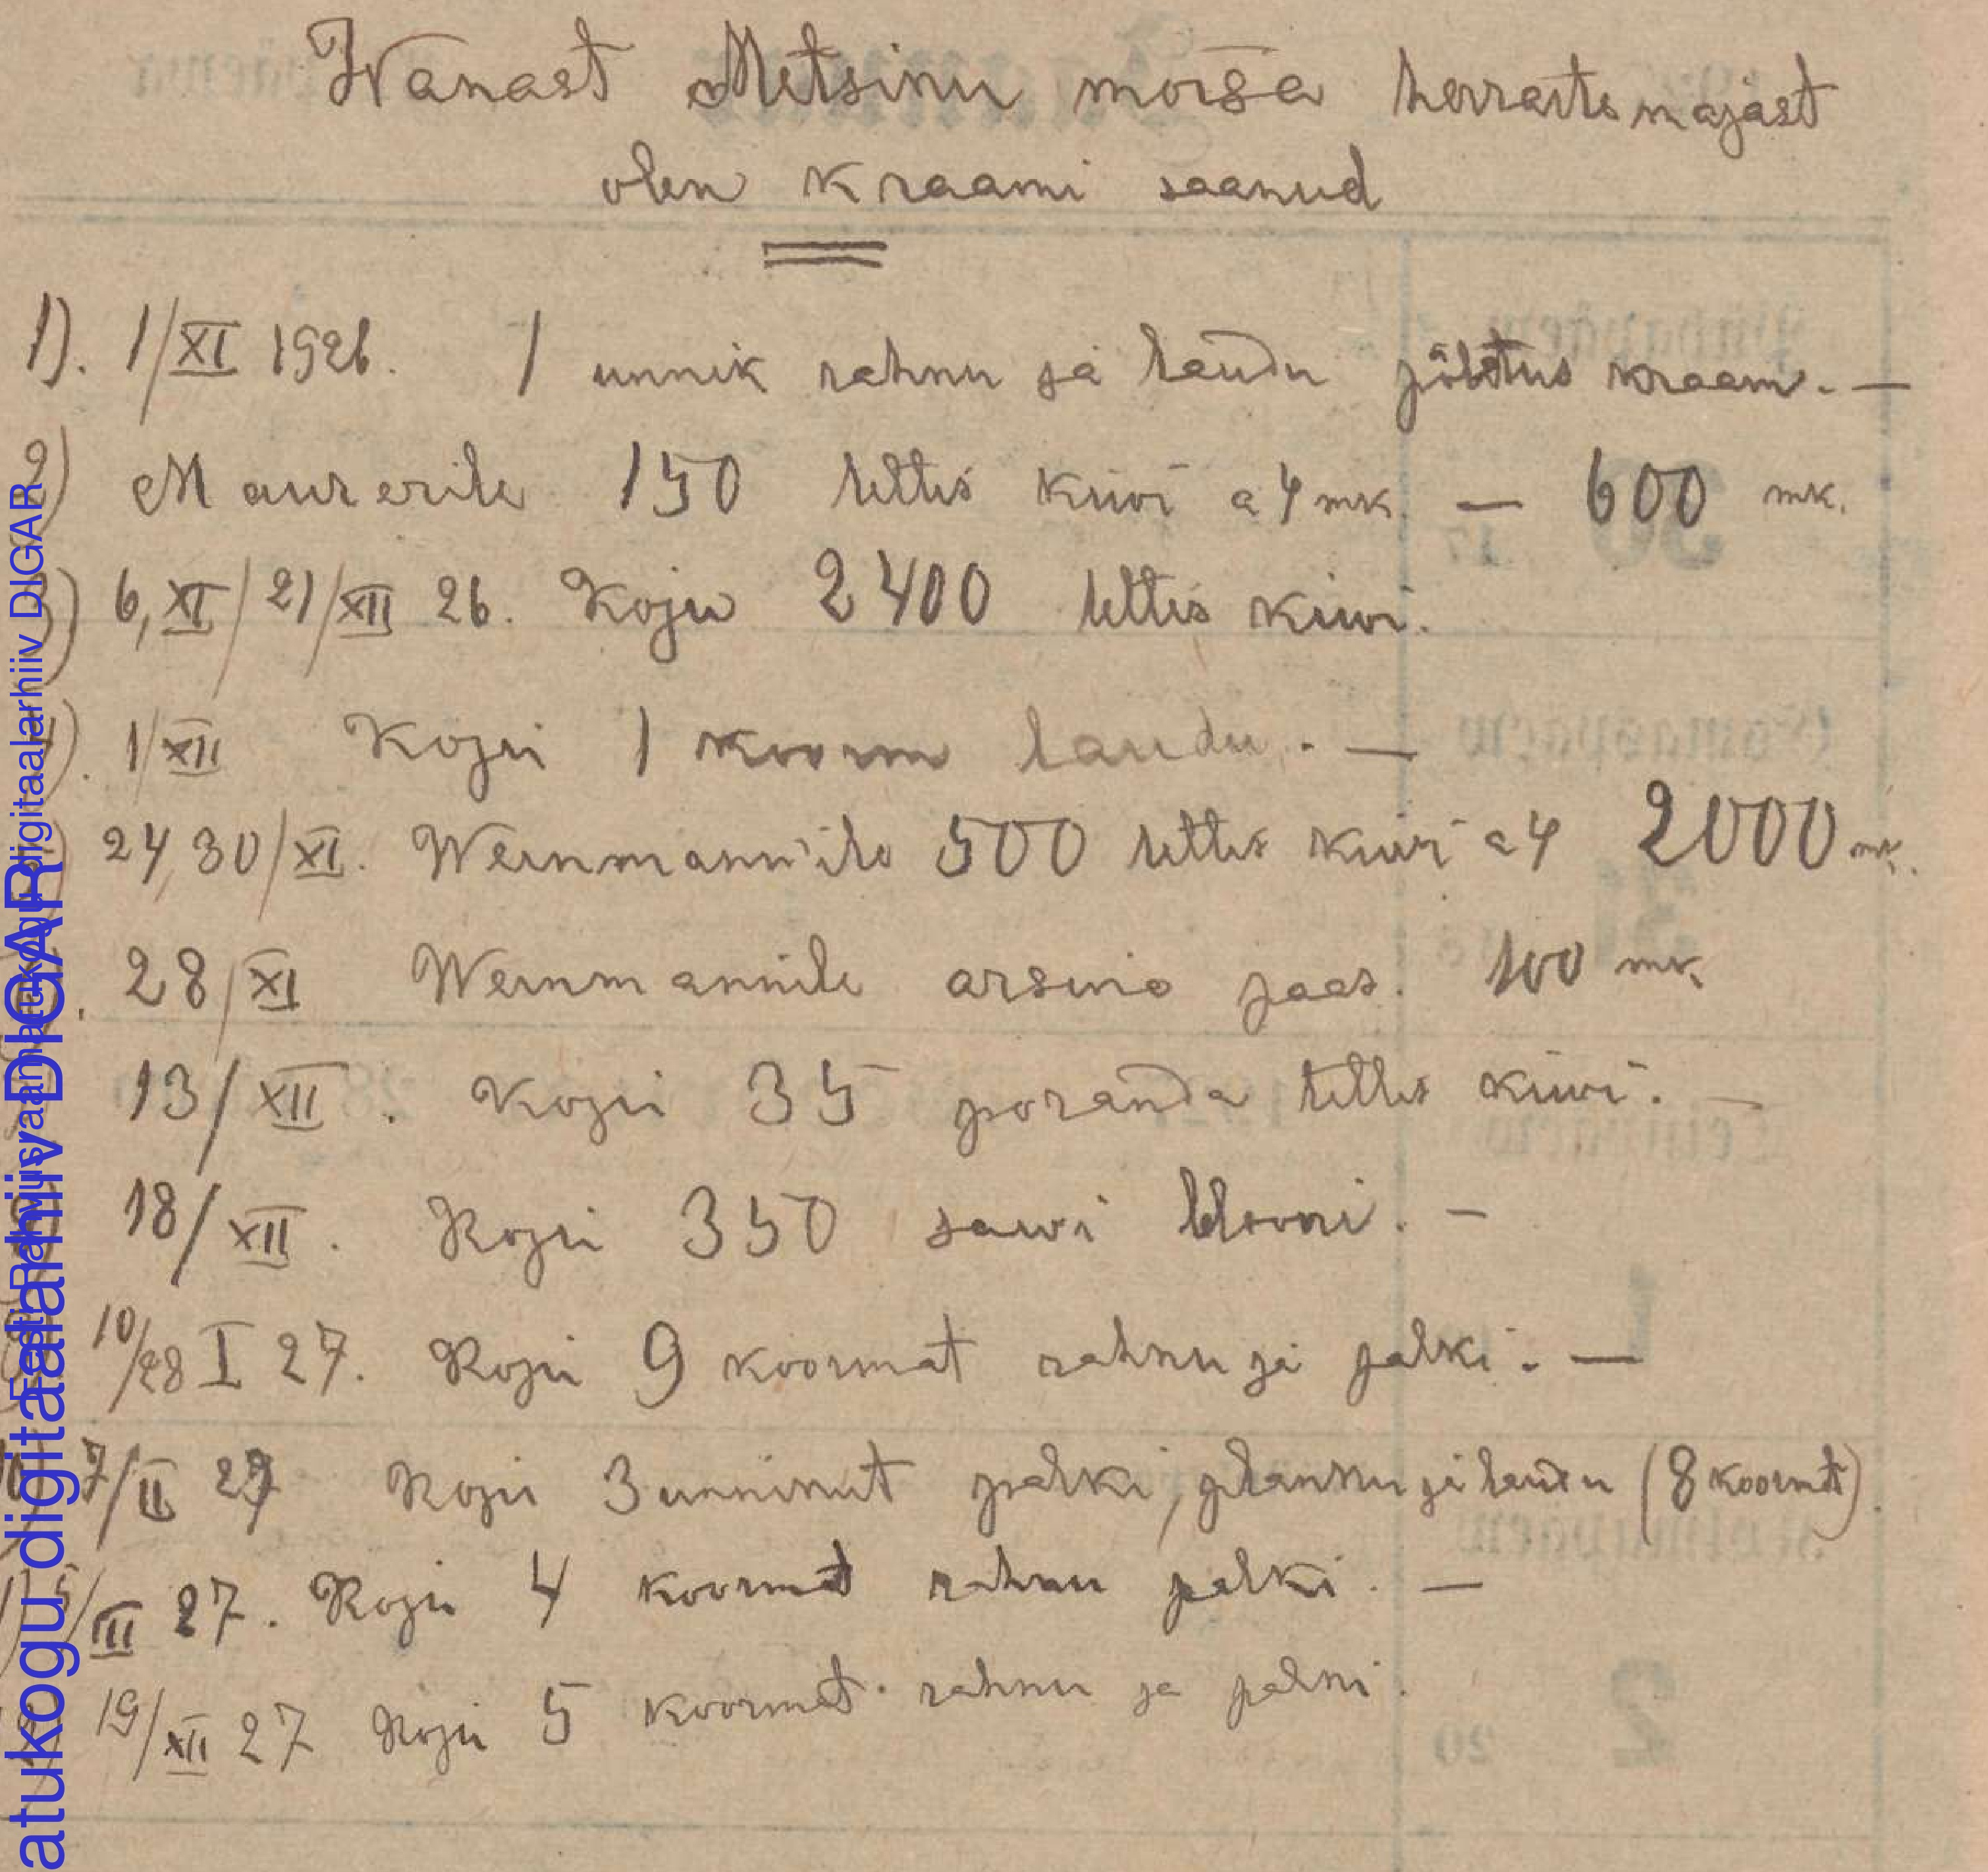 Wanast Metsiku mõisa herrastemajast
olen kraami saanud
1). 1/XI 1926. 1 unnik rahnu ja laudu põletus kraam. —
2) Maurerile 150 tellis kiwi a 4 mk. — 600 mk.
3) 6, XI / 21/XII 26. Koju 2400 tellis kiwi.
4). 1/XII Koju 1 koorm laudu. —
24, 30/XI. Weinmann'ile 500 tellis kiwi a 4 2000 mk.
28/XI Weinmannile paas. 100 mk.
13/XII. Koju 35 poranda tellis kiwi. —
18/XII. Koju 350 sawi klooni. —
10/28 I 27. Koju 9 koormat rahnu ja palki. —
7/II 27 Koju 3 unnikut palki, planku ja laudu (8 koormat).
5/III 27. Koju 4 koormat rahnu palki. —
19/XII 27 Koju 5 koormat rahnu ja palki.
Eesti Rahvusraamatukogu digitaalarhiiv DIGAR
atukogu digitaalarhiiv DIGAR